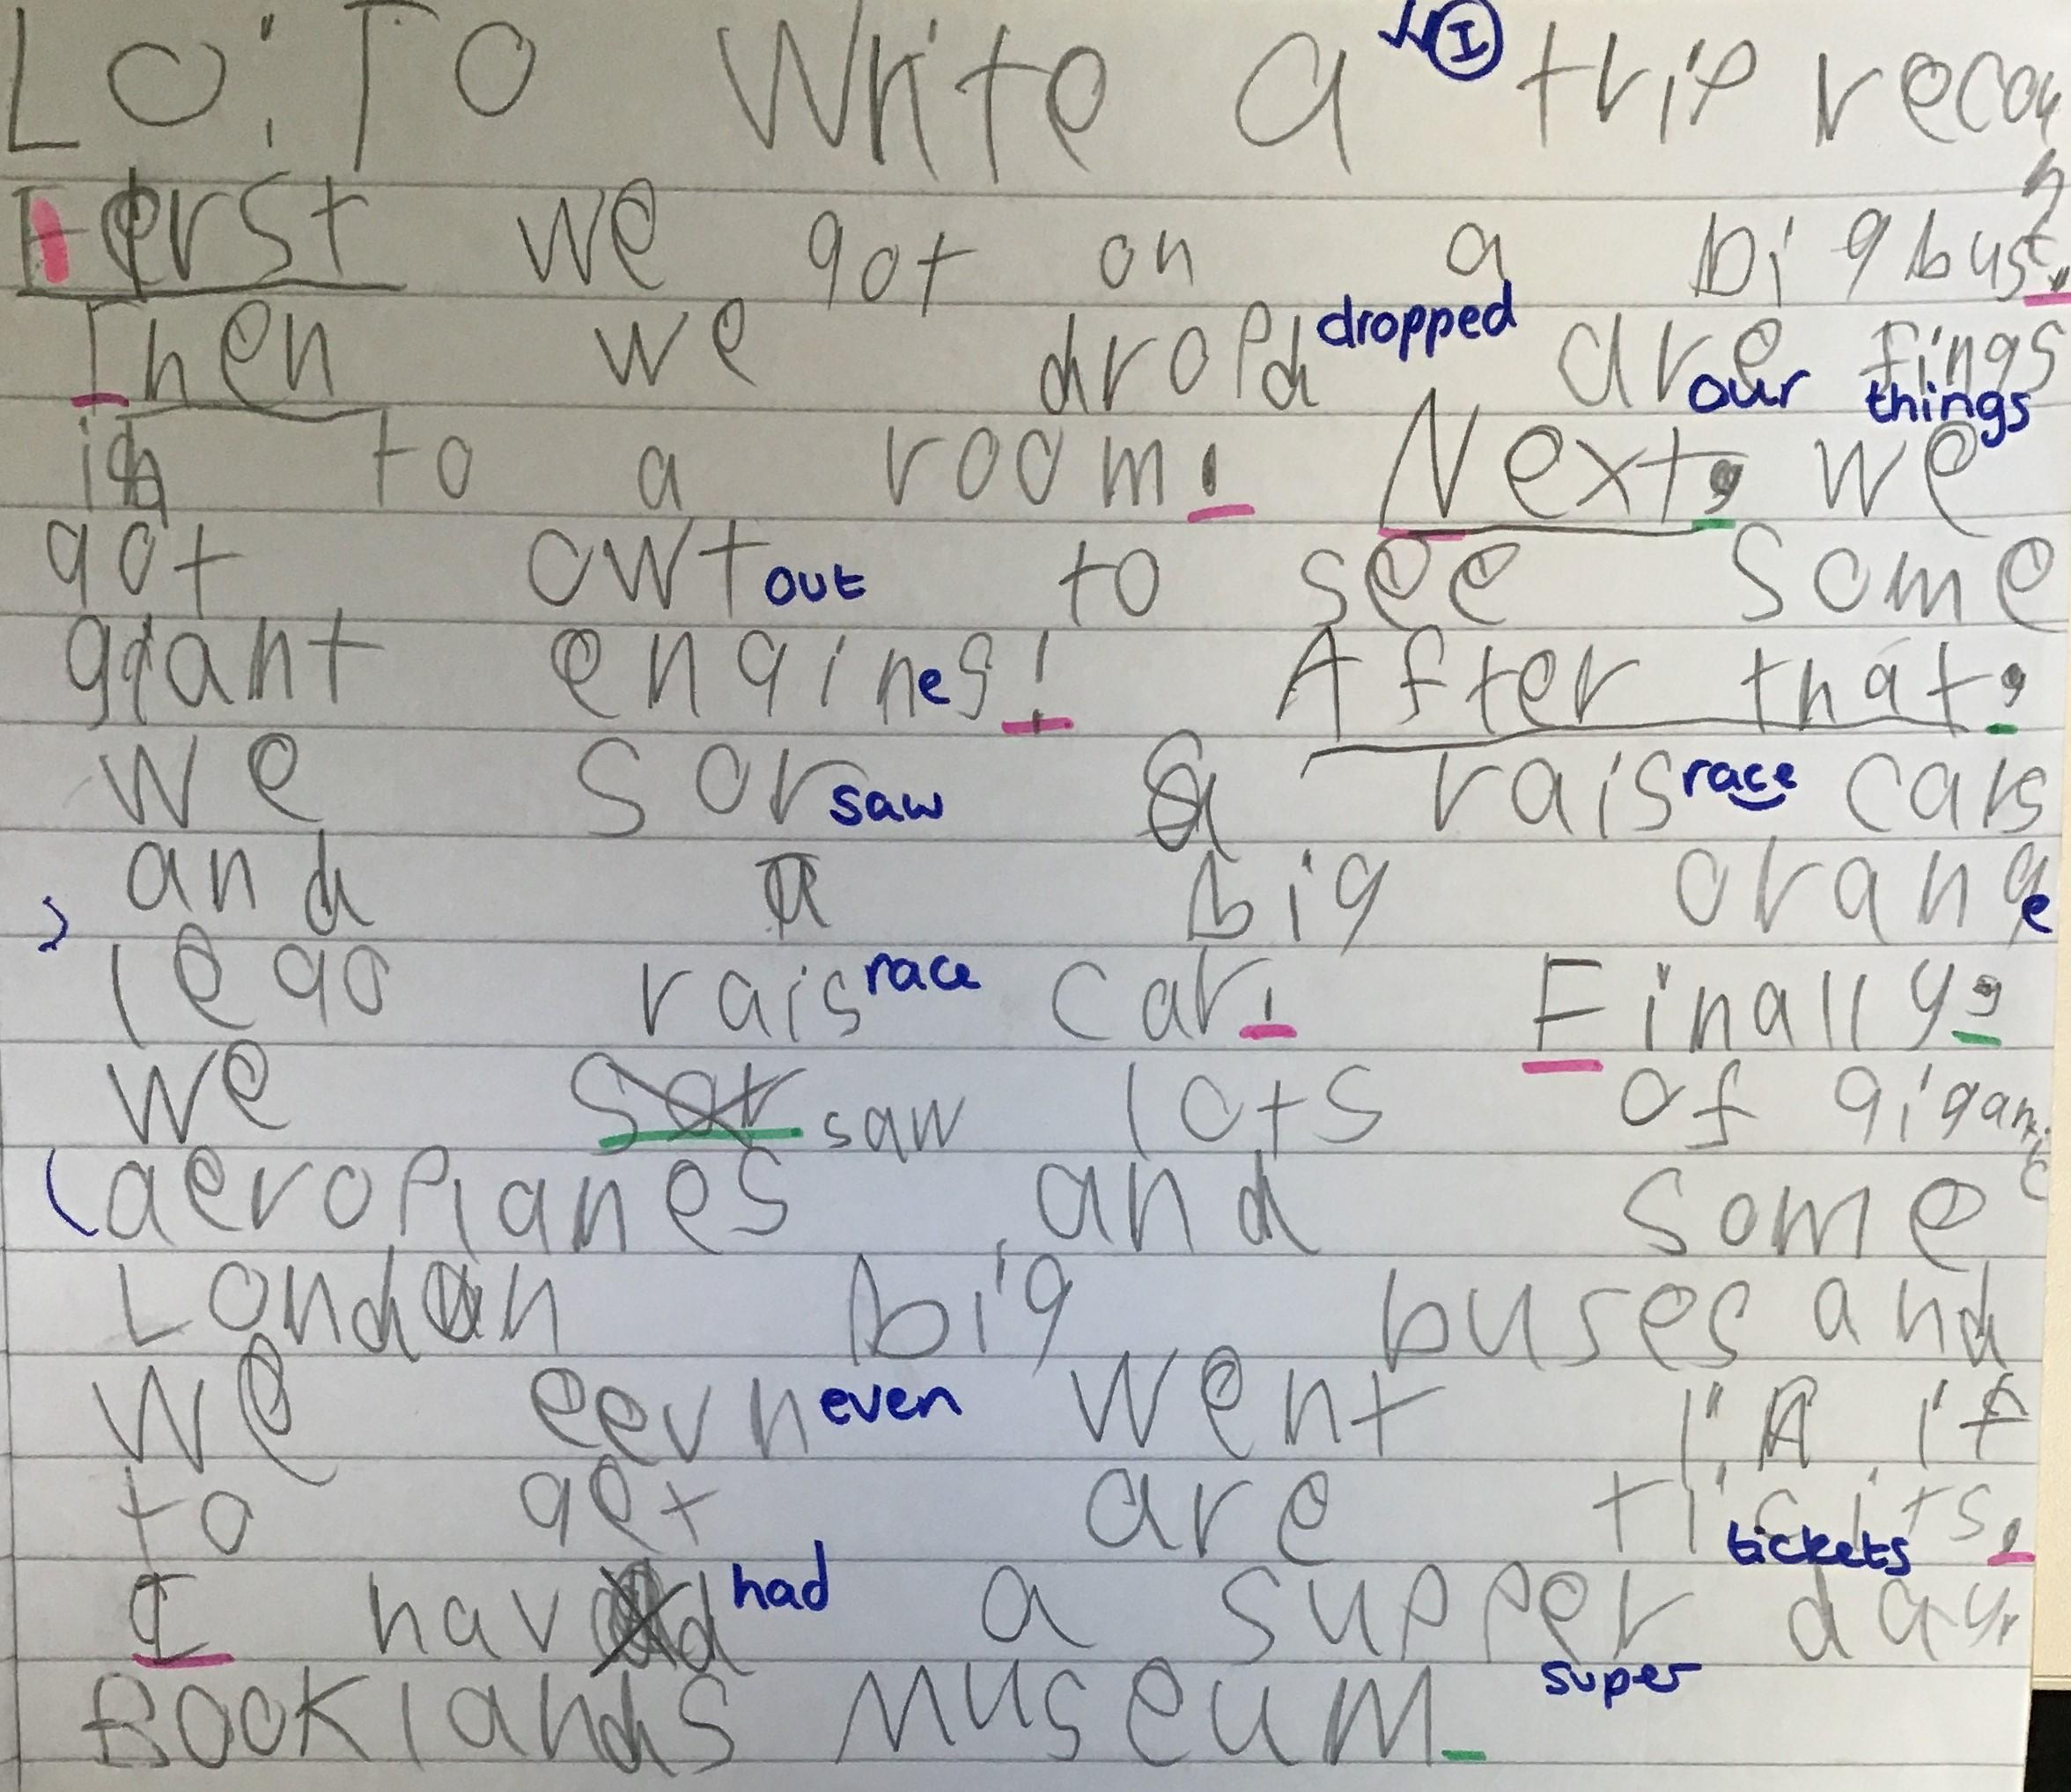 LO: TO Write a I trip recount
First we got on a big bus.
Then we dropd dropped are our fings things
in to a room. Next, we
got owt out to see some
giant engines! After that,
we sor saw rais race cars
and a big orange
lego rais race car. Finally,
we sor saw lots of gigantic
aeroplanes and some
London big buses and
we eevn even went
to get are ticits. tickets
I had a supper super day
Booklands Museum